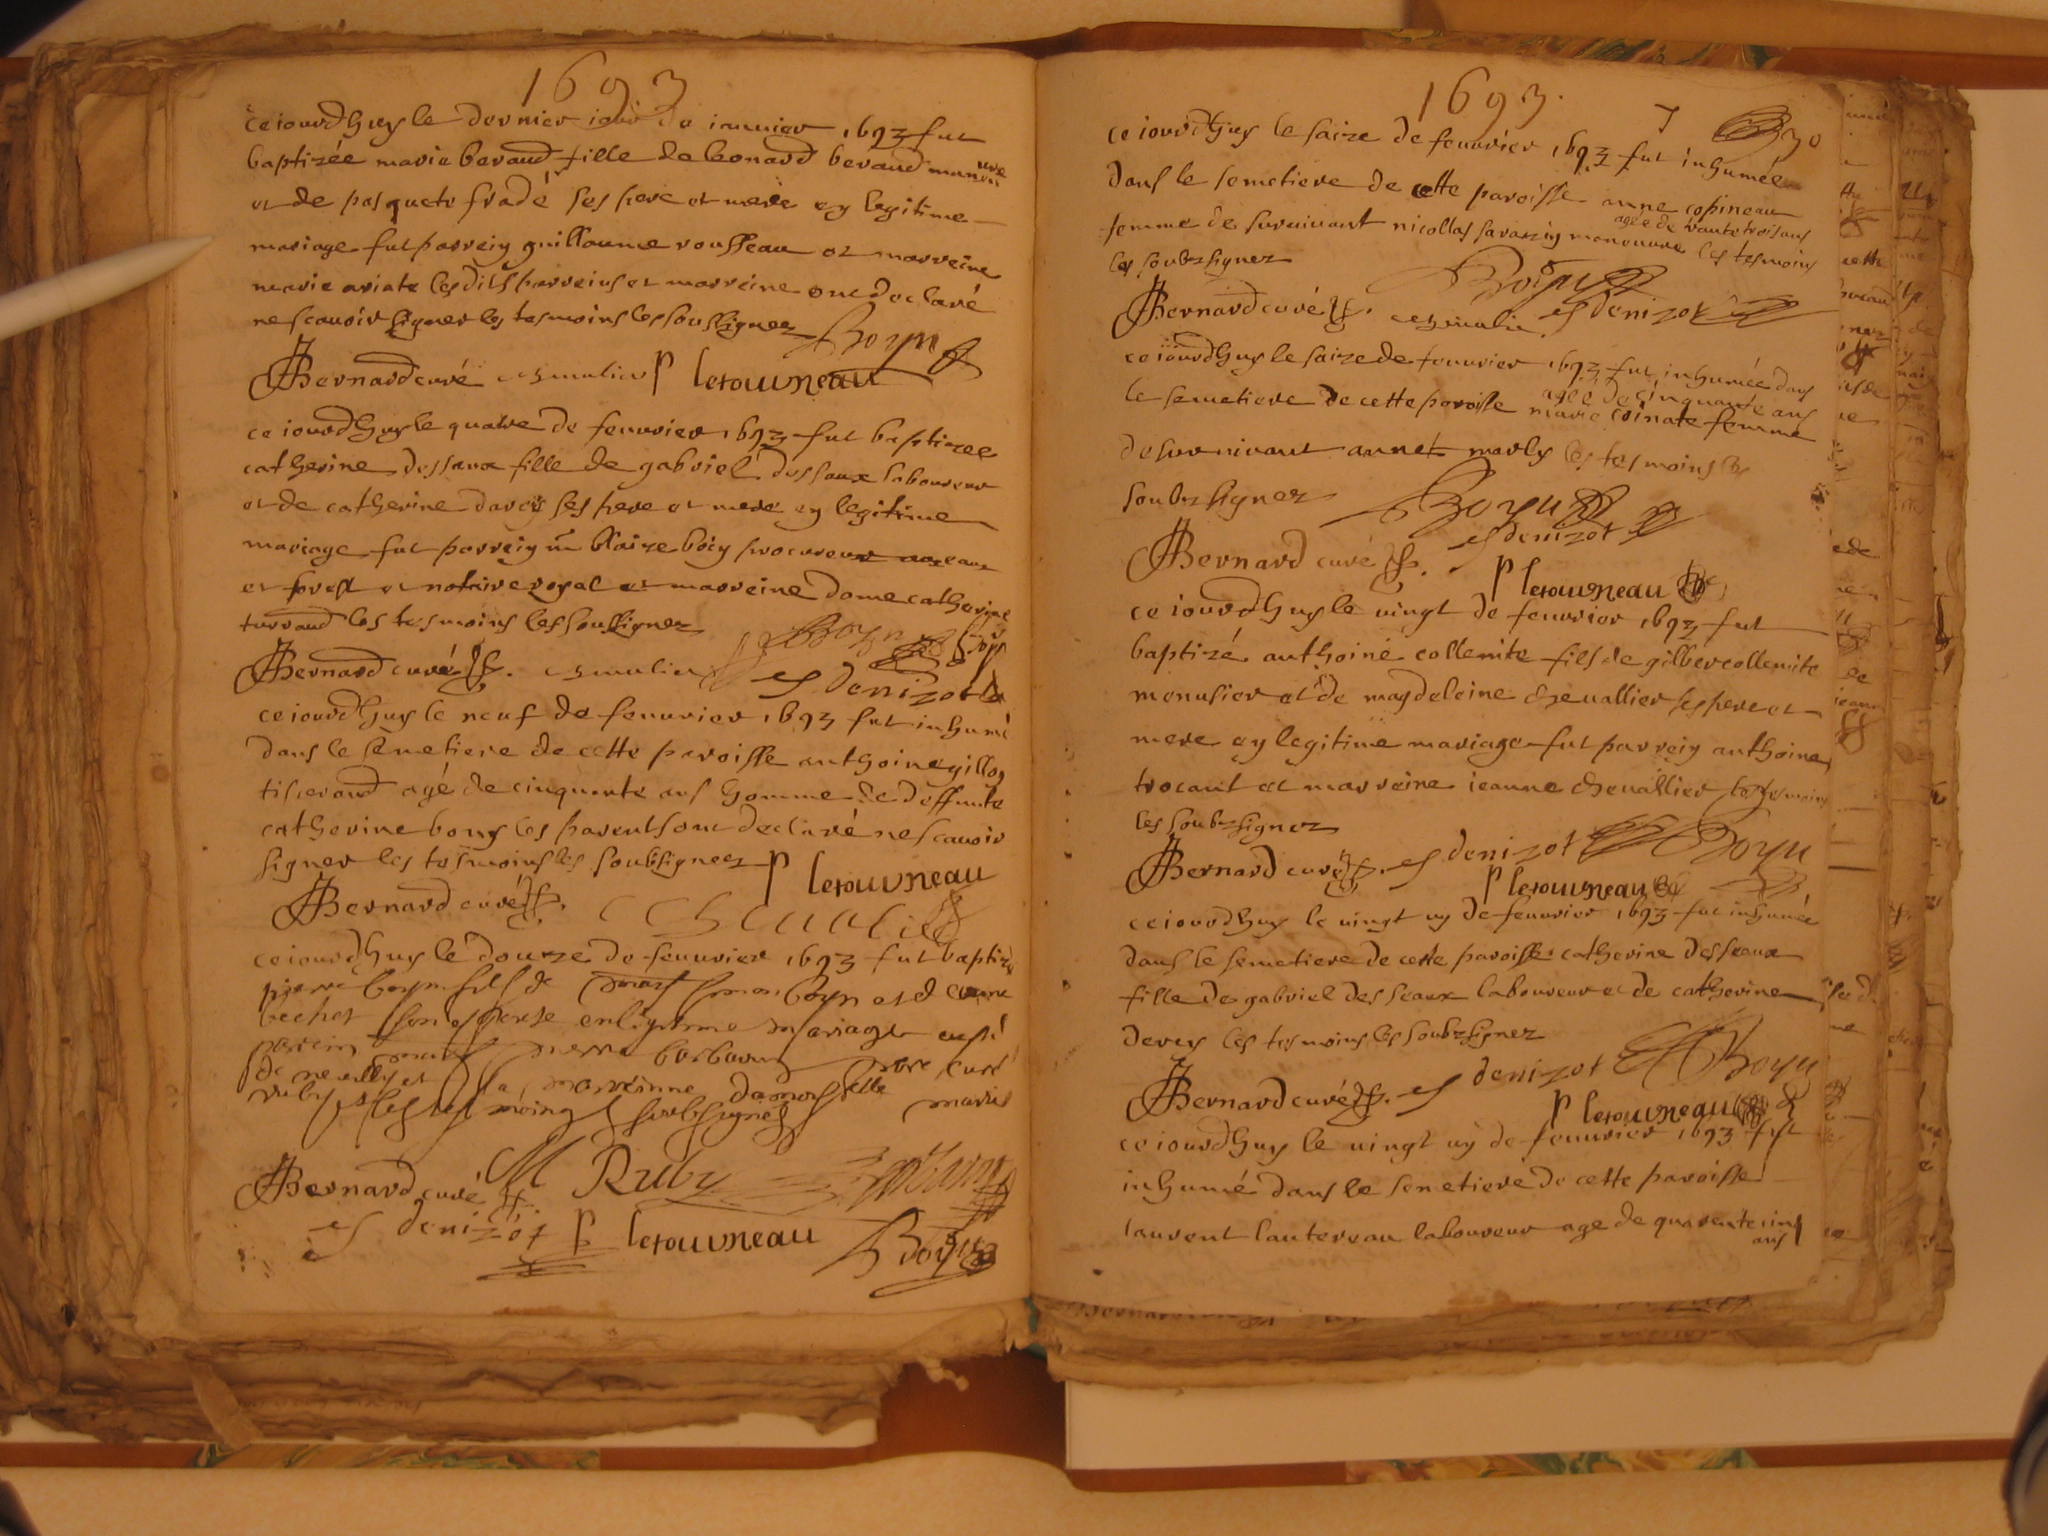 1693
ce iourdhuy le dernier iour de ianuier 1693 fut
baptizée marie beraud fille de leonard beraud manuure
et de pasquete fradé ses pere et mere en legitime
mariage fut parrein guillaume rousseau et marreine
marie ariate lesdits parreins et marreine ont declaré
ne scauoir signer les tesmoins les soussignez
Boyn
Bernard curé P letourneau
ce iourdhuy le quatre de feuurier 1693 fut baptizee
catherine desseaux fille de gabriel desseaux laboureur
et de catherine darcy ses pere et mere en legitime
mariage fut parrein blaize boiy procureur aux eaux
et forest et notaire royal et marreine dame catherine
turraud les tesmoins les soussignez
Bernard curé denizot
ce iourdhuy le neuf de feuurier 1693 fut inhumé
dans le semetiere de cette paroisse anthoine gillon
tisserand agé de cinquante ans homme de deffunte
catherine bony les parents ont declaré ne scauoir
signer les tesmoins les soubsignez P letourneau
Bernard curé
ce iourdhuy le douze de feuurier 1693 fut baptizé
pierre boyn fils de simon boyn et d
bechet son espouse en legitime mariage
parrein pierre barbaud curé
de neuilly et la marreinne damoiselle marie
ruby les tesmoings soubsignes
Bernard curé M Ruby
denizot P letourneau Boyn
1693.
7
30
ce iourdhuy le saize de feuurier 1693 fut inhumée
dans le semetiere de cette paroisse anne copineau
agée de trante trois ans
femme de suruiuant nicollas sarazin manouure les tesmoins
les soubzsignez
Boyn
Bernard curé denizot
ce iourdhuy le saize de feuurier 1693 fut inhumée dans
agée de cinquante ans
le semetiere de cette paroisse marie coinate femme
de suruiuant annet marly les tesmoins les
soubzsignez Boyn
Bernard curé denizot
P letourneau
ce iourdhuy le uingt de feuurier 1693 fut
baptizé anthoine collemite fils de gilbert collemite
menusier et de magdeleine cheuallier ses pere et
mere en legitime mariage fut parrein anthoine
trocant et marreine ieanne cheuallier les tesmoins
les soubzsignez
Bernard curé denizot Boyn
P letourneau
ce iourdhuy le uingt un de feuurier 1693 fut inhumée
dans le semetiere de cette paroisse catherine desseaux
fille de gabriel desseaux laboureur et de catherine
darcy les tesmoins les soubzsignez
Bernard curé denizot Boyn
P letourneau
ce iourdhuy le uingt un de feuurier 1693 fut
inhumé dans le semetiere de cette paroisse
laurent lautereau laboureur age de quarente cinq
ans